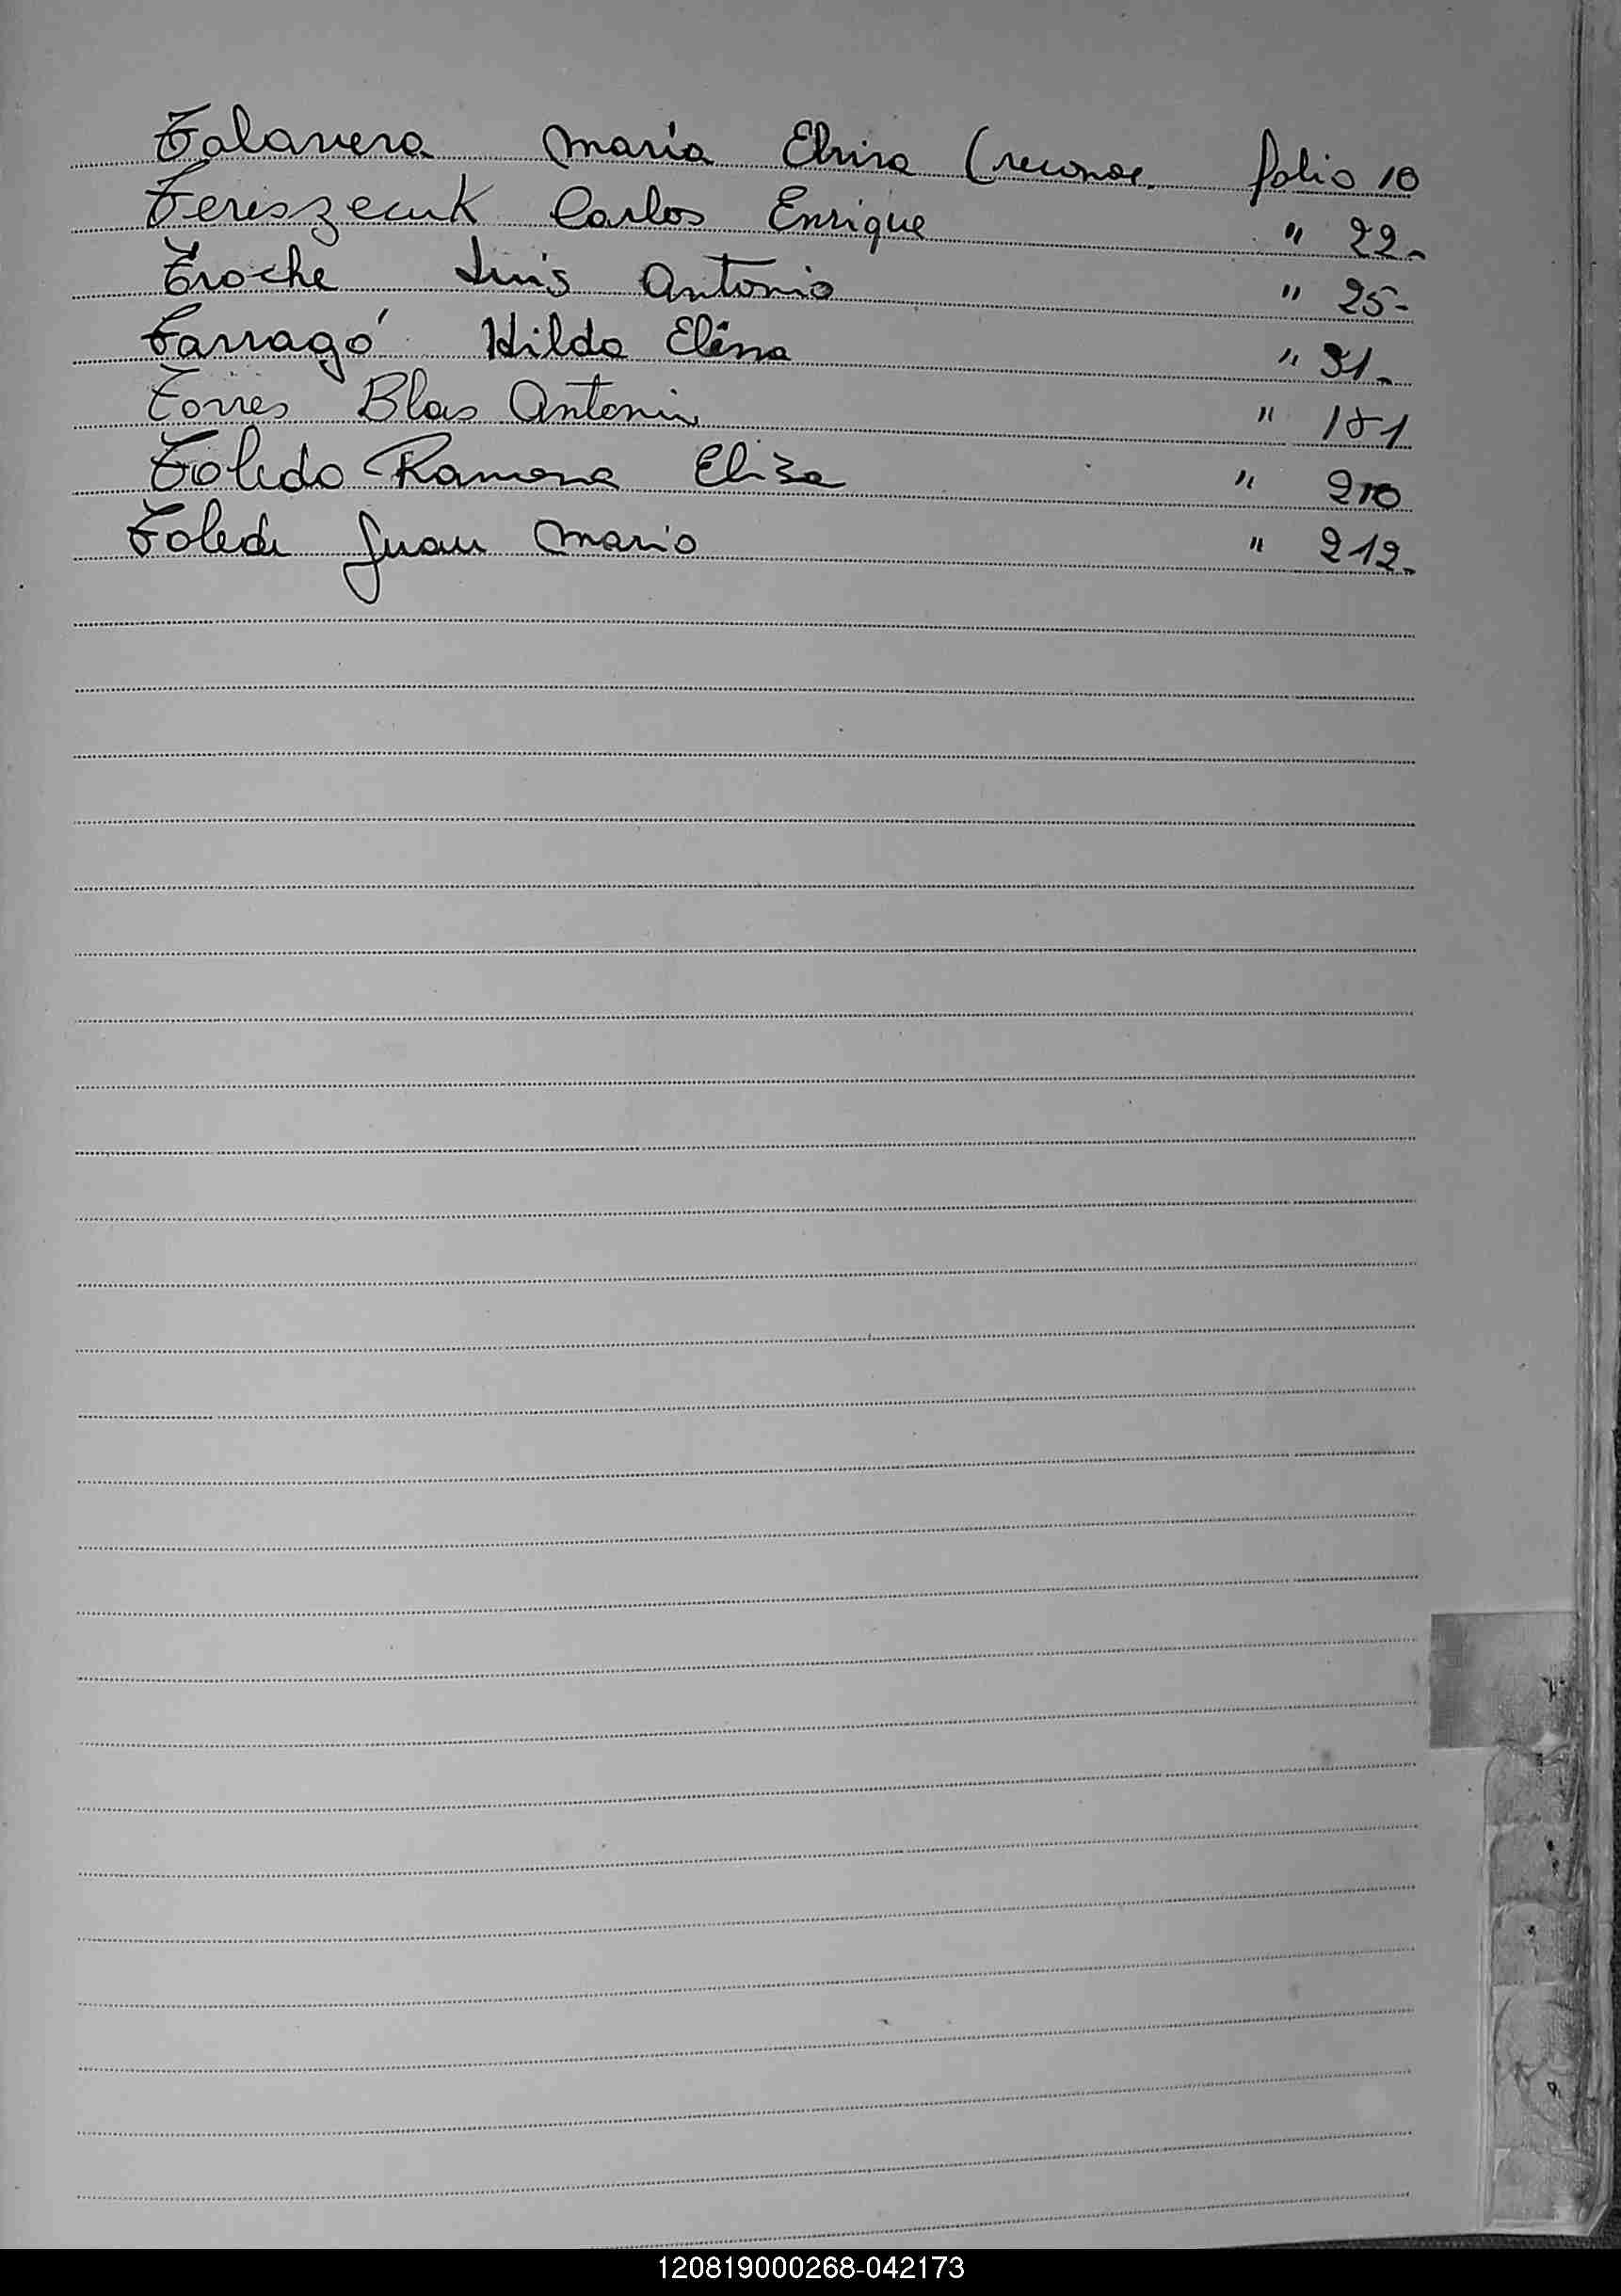 Talavera María Elvira (reconoc. folio 10
Tereszecuk Carlos Enrique " 22-
Troche Luis Antonio " 25-
Tarragó Hilda Elena " 31-
Torres Blas Antonio " 181
Toledo Ramona Eliza " 210
Toledo Juan Mario " 212-
120819000268-042173